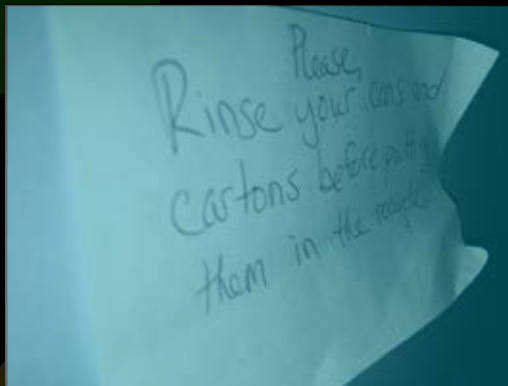 Please,
Rinse your cans and
cartons before putting
them in the